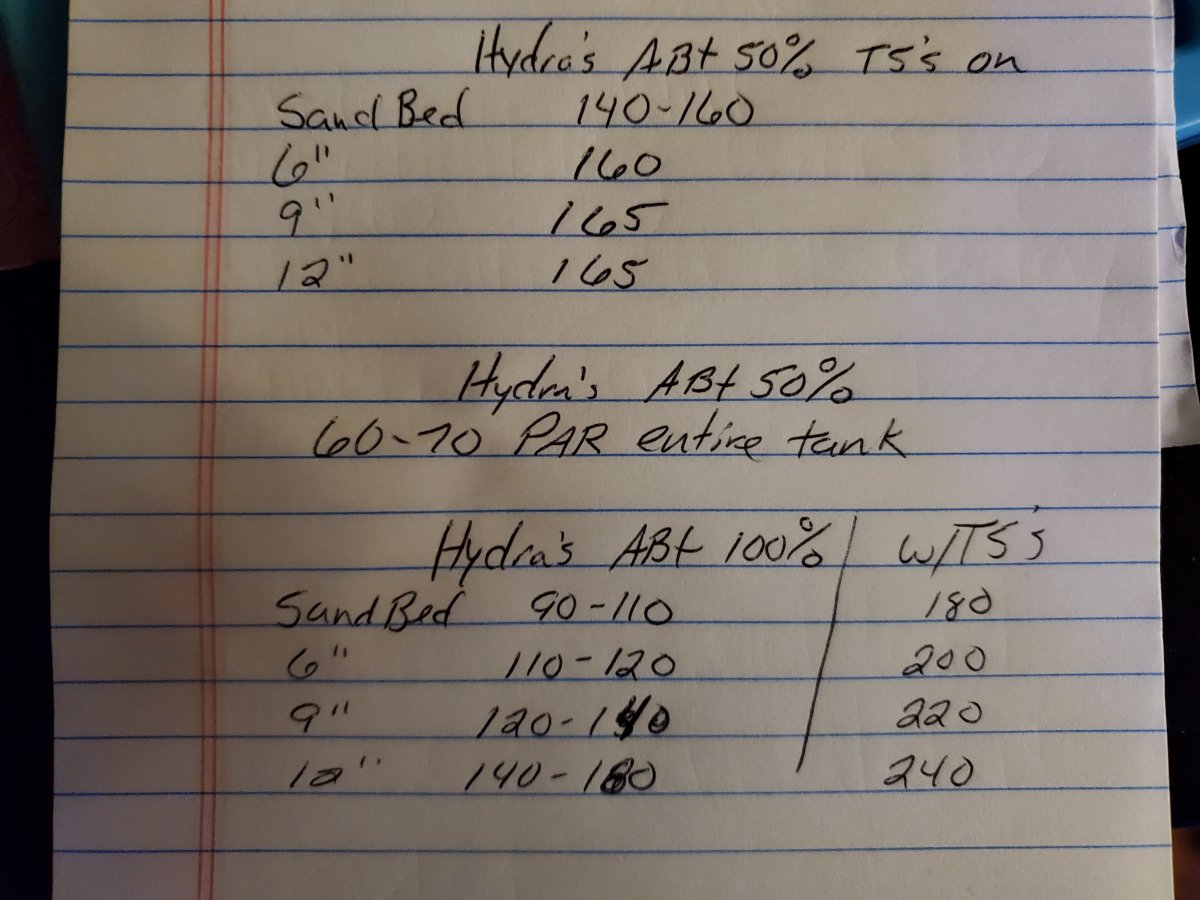 Hydra's AB+ 50% T5's on
Sand Bed 140-160
6" 160
9" 165
12" 165
Hydra's AB+ 50%
60-70 PAR entire tank
Hydra's AB+ 100% | w/T5's
Sand Bed 90-110 180
6" 110-120 200
9" 120-140 220
12" 140-180 240